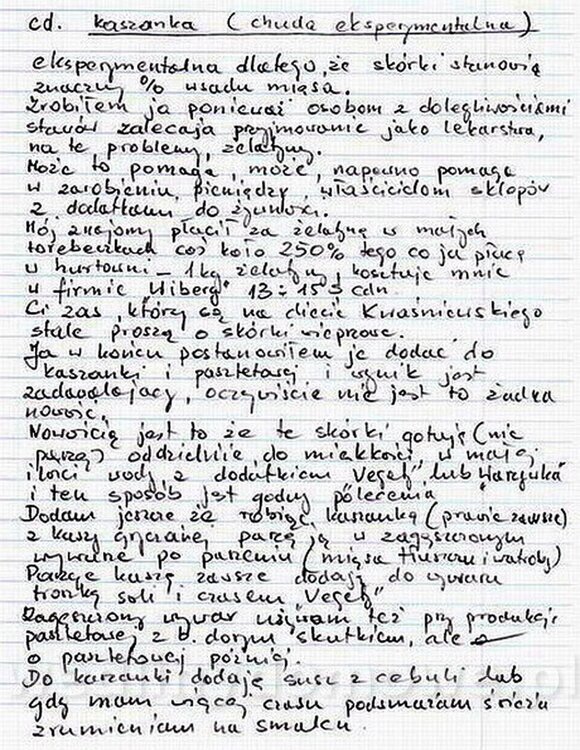 cd. kaszanka (chuda eksperymentalna)
eksperymentalna dlatego, że skórki stanowią
znaczny % wsadu mięsa.
Zrobiłem ją ponieważ osobom z dolegliwościami
stawów zalecają przyjmowanie jako lekarstwa,
na te problemy, żelatyny.
Może to pomaga, może, napewno pomaga
w zarobieniu pieniędzy właścicielom sklepów
z dodatkami do żywności.
Mój znajomy płacił za żelatynę w małych
torebeczkach coś koło 250% tego co ja płacę
w hurtowni - 1kg żelatyny kosztuje mnie
w firmie "Wiberg" 13 ÷ 15 $ cdn.
Ci zaś, którzy są na diecie Kwaśniewskiego
stale proszą o skórki wieprzowe.
Ja w końcu postanowiłem je dodać do
kaszanki i pasztetowej i wynik jest
zadawalający, oczywiście nie jest to żadna
nowość.
Nowością jest to że te skórki gotuję (nie
parzę) oddzielnie do miękkości, w małej
ilości wody z dodatkiem "Vegety" lub "Warzywka"
i ten sposób jest godny polecenia
Dodam jeszcze że robiąc kaszankę (prawie zawsze)
z kaszy gryczanej, parzę ją w zagęszczonym
wywarze po parzeniu (mięsa tłuszczu i wątroby)
Parząc kaszę zawsze dodaję do wywaru
troszkę soli i czasem "Vegety"
Zagęszczony wywar używam też przy produkcji
pasztetowej z b. dobrym skutkiem, ale
o pasztetowej później.
Do kaszanki dodaję susz z cebuli lub
gdy mam więcej czasu podsmażam świeżą
zrumieniam na smalcu.